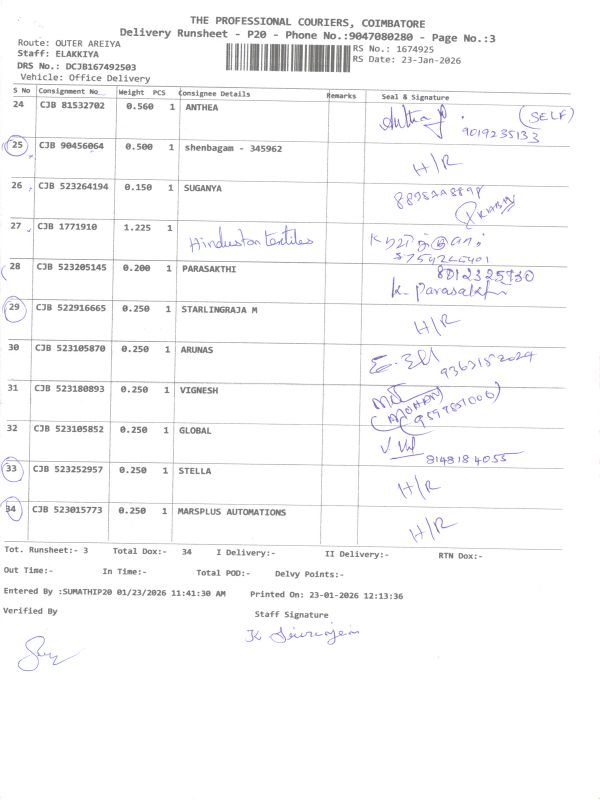 THE PROFESSIONAL COURIERS, COIMBATORE
Delivery Runsheet - P20 - Phone No.:9047080280 - Page No.:3
Route: OUTER AREIYA
RS No.: 1674925
Staff: ELAKKIYA
RS Date: 23-Jan-2026
DRS No.: DCJB167492503
Vehicle: Office Delivery
S No Consignment No Weight PCS Consignee Details Remarks Seal & Signature
24 CJB 81532702 0.560 1 ANTHEA (SELF)
9019235133
25 CJB 90456064 0.500 1 shenbagam - 345962 H/R
26 CJB 523264194 0.150 1 SUGANYA
27 CJB 1771910 1.225 1 Hindustan textiles
28 CJB 523205145 0.200 1 PARASAKTHI
K. Parasakthi
29 CJB 522916665 0.250 1 STARLINGRAJA M H/R
30 CJB 523105870 0.250 1 ARUNAS
9363152024
31 CJB 523180893 0.250 1 VIGNESH
(MOHAN)
32 CJB 523105852 0.250 1 GLOBAL
8148184055
33 CJB 523252957 0.250 1 STELLA H/R
34 CJB 523015773 0.250 1 MARSPLUS AUTOMATIONS H/R
Tot. Runsheet:- 3 Total Dox:- 34 I Delivery:- II Delivery:- RTN Dox:-
Out Time:- In Time:- Total POD:- Delvy Points:-
Entered By :SUMATHIP20 01/23/2026 11:41:30 AM Printed On: 23-01-2026 12:13:36
Verified By Staff Signature